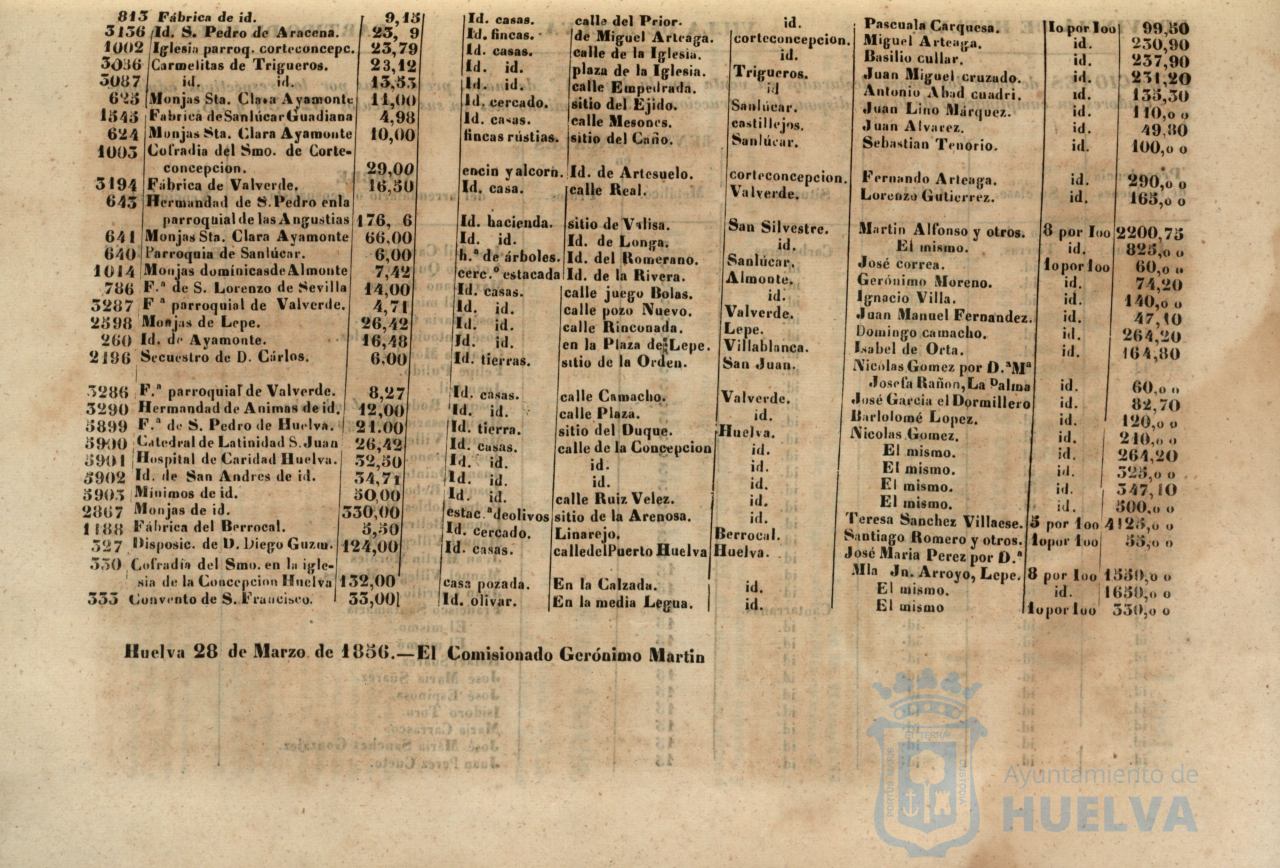 813 Fábrica de id. 9,15 Id. casas. calle del Prior. id. Pascuala Carquesa. 1o por 1oo 99,50
3136 Id. S. Pedro de Aracena. 23, 9 Id. fincas. de Miguel Arteaga. corteconcepcion. Miguel Arteaga. id. 230,90
1002 Iglesia parroq. corteconcepc. 23,79 Id. casas. calle de la Iglesia. id. Basilio cullar. id. 237,90
3086 Carmelitas de Trigueros. 23,12 Id. id. plaza de la Iglesia. Trigueros. Juan Miguel cruzado. id. 231,20
3087 id. id. 13,53 Id. id. calle Empedrada. id Antonio Abad cuadri. id. 135,30
625 Monjas Sta. Clara Ayamonte 11,00 Id. cercado. sitio del Ejido. Sanlúcar. Juan Lino Márquez. id. 110,o o
1545 Fabrica de Sanlúcar Guadiana 4,98 Id. casas. calle Mesones. castillejos. Juan Alvarez. id. 49,80
624 Monjas Sta. Clara Ayamonte 10,00 fincas rústias. sitio del Caño. Sanlúcar. Sebastian Tenorio. id. 100,o o
1003 Cofradia del Smo. de Corte-
concepcion. 29,00 encin y alcorn. Id. de Artesuelo. corteconcepcion. Fernando Arteaga. id. 290,o o
3194 Fábrica de Valverde. 16,50 Id. casa. calle Real. Valverde. Lorenzo Gutierrez. id. 165,o o
643 Hermandad de S. Pedro en la
parroquial de las Angustias 176, 6 Id. hacienda. sitio de Valisa. San Silvestre. Martin Alfonso y otros. 8 por 1oo 2200,75
641 Monjas Sta. Clara Ayamonte 66,00 Id. id. Id. de Longa. id. El mismo. id. 825,o o
640 Parroquia de Sanlúcar. 6,00 h.ª de árboles. Id. del Romerano. Sanlúcar. José correa. 1o por 1oo 60,o o
1014 Monjas dominicas de Almonte 7,42 cerc.º estacada Id. de la Rivera. Almonte. Gerónimo Moreno. id. 74,20
786 F.ª de S. Lorenzo de Sevilla 14,00 Id. casas. calle juego Bolas. id. Ignacio Villa. id. 140,o o
3287 F ª parroquial de Valverde. 4,71 Id. id. calle pozo Nuevo. Valverde. Juan Manuel Fernandez. id. 47,10
2598 Monjas de Lepe. 26,42 Id. id. calle Rinconada. Lepe. Domingo camacho. id. 264,20
260 Id. de Ayamonte. 16,48 Id. id. en la Plaza de Lepe. Villablanca. Isabel de Orta. id. 164,80
2196 Secuestro de D. Cárlos. 6,00 Id. tierras. sitio de la Orden. San Juan. Nicolas Gomez por D.ª Mª
Josefa Rañon, La Palma id. 60,o o
3286 F.ª parroquial de Valverde. 8,27 Id. casas. calle Camacho. Valverde. José Garcia el Dormillero id. 82,70
3290 Hermandad de Animas de id. 12,00 Id. id. calle Plaza. id. Barlolomé Lopez. id. 120,o o
5899 F.ª de S. Pedro de Huelva. 21.00 Id. tierra. sitio del Duque. Huelva. Nicolas Gomez. id. 210,o o
5900 Catedral de Latinidad S. Juan 26,42 Id. casas. calle de la Concepcion id. El mismo. id. 264,20
5901 Hospital de Caridad Huelva. 32,50 Id. id. id. id. El mismo. id. 325,o o
5902 Id. de San Andres de id. 34,71 Id. id. id. id. El mismo. id. 347,10
5903 Mínimos de id. 50,00 Id. id. calle Ruiz Velez. id. El mismo. id. 500,o o
2867 Monjas de id. 330,00 estac.ª de olivos sitio de la Arenosa. id. Teresa Sanchez Villaese. 5 por 1oo 4125,o o
1188 Fábrica del Berrocal. 5,50 Id. cercado. Linarejo. Berrocal. Santiago Romero y otros. 1o por 1oo 55,o o
327 Disposic. de D. Diego Guzm. 124,00 Id. casas. calle del Puerto Huelva Huelva. José Maria Perez por D.ª
Mla Jn. Arroyo, Lepe. 8 por 1oo 1550,o o
330 Cofradía del Smo. en la igle-
sia de la Concepcion Huelva 132,00 casa pozada. En la Calzada. id. El mismo. id. 1650,o o
333 Convento de S. Francisco. 33,00 Id. olivar. En la media Legua. id. El mismo 1o por 1oo 330,o o
Huelva 28 de Marzo de 1856.—El Comisionado Gerónimo Martin
Ayuntamiento de
HUELVA